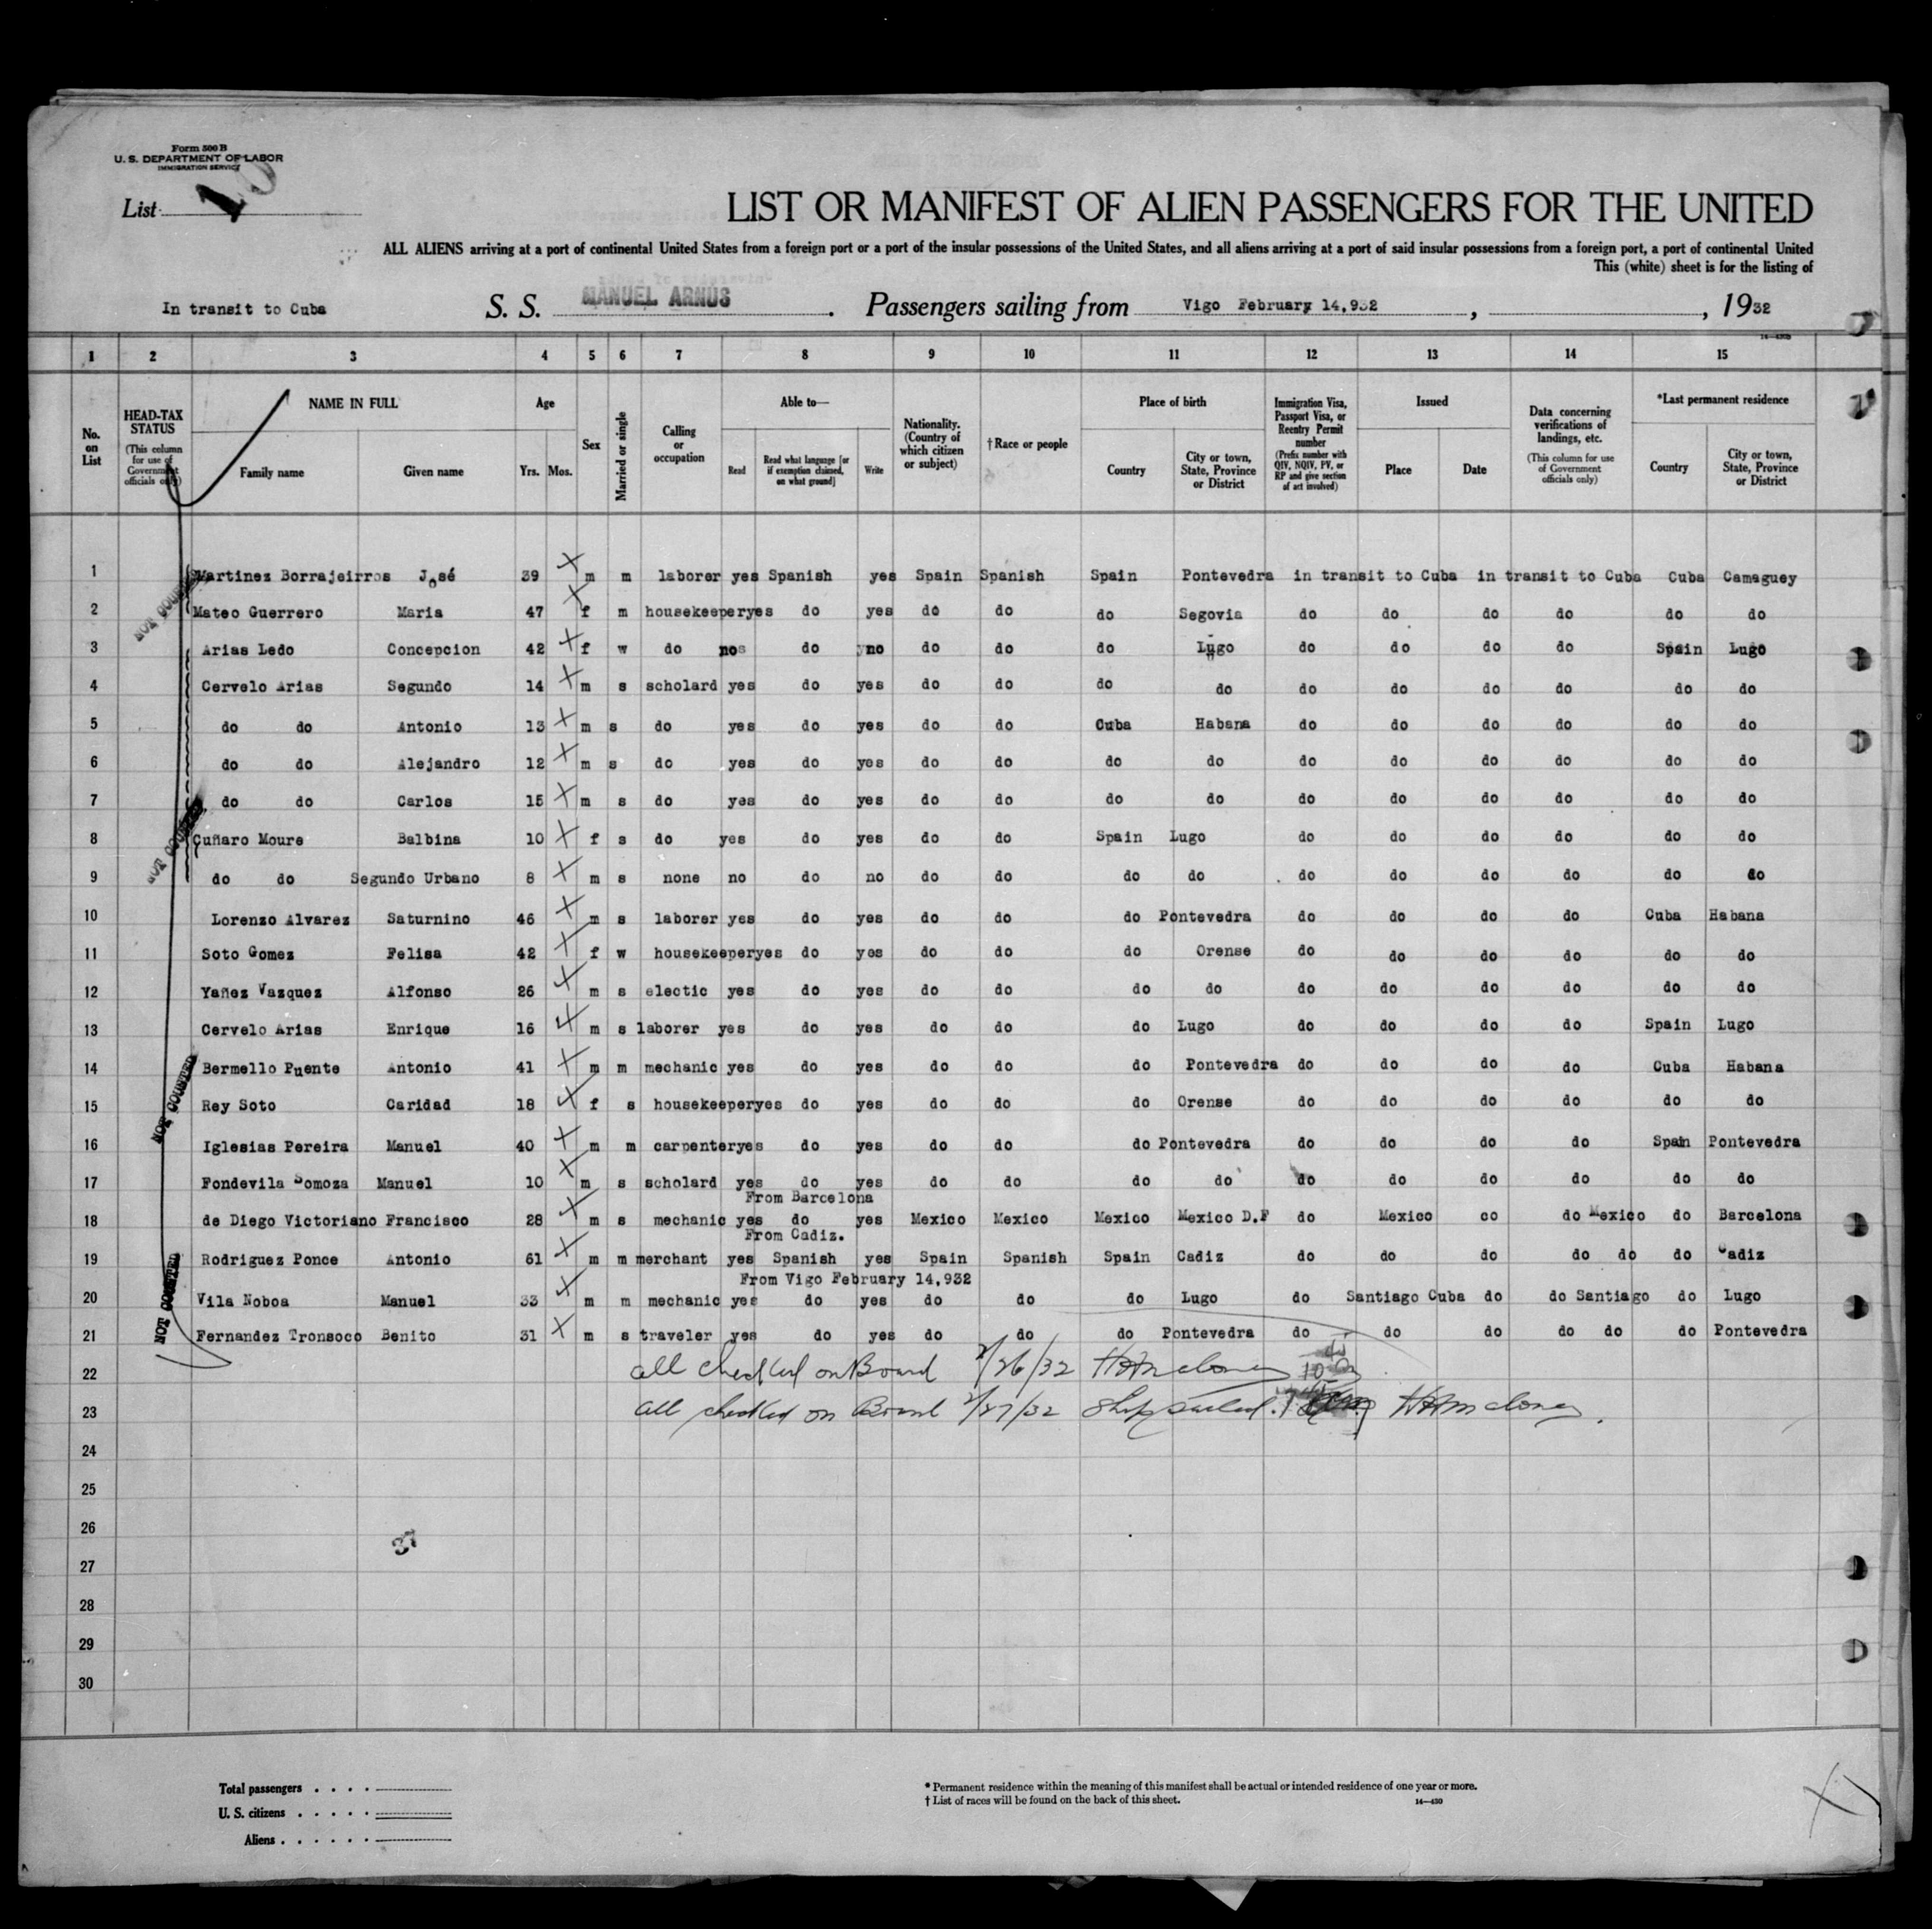 Form 500 B
U. S. DEPARTMENT OF LABOR
IMMIGRATION SERVICE
List 10
LIST OR MANIFEST OF ALIEN PASSENGERS FOR THE UNITED
ALL ALIENS arriving at a port of continental United States from a foreign port or a port of the insular possessions of the United States, and all aliens arriving at a port of said insular possessions from a foreign port, a port of continental United
This (white) sheet is for the listing of
In transit to Cuba S. S. MANUEL ARNUS. Passengers sailing from Vigo February 14,932, , 1932
1 2 3 4 5 6 7 8 9 10 11 12 13 14 15
No. on List
HEAD-TAX STATUS (This column for use of Government officials only)
NAME IN FULL Family name Given name
Age Yrs. Mos.
Sex
Married or single
Calling or occupation
Able to— Read Read what language [or if exemption claimed, on what ground] Write
Nationality. (Country of which citizen or subject)
†Race or people
Place of birth Country City or town, State, Province or District
Immigration Visa, Passport Visa, or Reentry Permit number (Prefix number with QIV, NQIV, PV, or RP and give section of act involved)
Issued Place Date
Data concerning verifications of landings, etc. (This column for use of Government officials only)
*Last permanent residence Country City or town, State, Province or District
1 Martinez Borrajeirros José 39 m m laborer yes Spanish yes Spain Spanish Spain Pontevedra in transit to Cuba in transit to Cuba Cuba Camaguey
2 Mateo Guerrero Maria 47 f m housekeeper yes do yes do do do Segovia do do do do do do
3 Arias Ledo Concepcion 42 f w do no do no do do do Lugo do do do do Spain Lugo
4 Cervelo Arias Segundo 14 m s scholard yes do yes do do do do do do do do do do
5 do do Antonio 13 m s do yes do yes do do Cuba Habana do do do do do do
6 do do Alejandro 12 m s do yes do yes do do do do do do do do do do
7 do do Carlos 15 m s do yes do yes do do do do do do do do do do
8 Cuñaro Moure Balbina 10 f s do yes do yes do do Spain Lugo do do do do do do
9 do do Segundo Urbano 8 m s none no do no do do do do do do do do do do
10 Lorenzo Alvarez Saturnino 46 m s laborer yes do yes do do do Pontevedra do do do do Cuba Habana
11 Soto Gomez Felisa 42 f w housekeeper yes do yes do do do Orense do do do do do do
12 Yañez Vazquez Alfonso 26 m s electic yes do yes do do do do do do do do do do
13 Cervelo Arias Enrique 16 m s laborer yes do yes do do do Lugo do do do do Spain Lugo
14 Bermello Puente Antonio 41 m m mechanic yes do yes do do do Pontevedra do do do do Cuba Habana
15 Rey Soto Caridad 18 f s housekeeper yes do yes do do do Orense do do do do do do
16 Iglesias Pereira Manuel 40 m m carpenter yes do yes do do do Pontevedra do do do do Spain Pontevedra
17 Fondevila Somoza Manuel 10 m s scholard yes do yes do do do do do do do do do do
From Barcelona
18 de Diego Victoriano Francisco 28 m s mechanic yes do yes Mexico Mexico Mexico Mexico D.F do Mexico do do Mexico do Barcelona
From Cadiz.
19 Rodriguez Ponce Antonio 61 m m merchant yes Spanish yes Spain Spanish Spain Cadiz do do do do do do Cadiz
From Vigo February 14,932
20 Vila Noboa Manuel 33 m m mechanic yes do yes do do do Lugo do Santiago Cuba do do Santiago do Lugo
21 Fernandez Tronsoco Benito 31 m s traveler yes do yes do do do Pontevedra do do do do do do Pontevedra
NOT COUNTED
NOT COUNTED
NOT COUNTED
NOT COUNTED
22 all checked on Board 2/26/32
23 all checked on Board 2/27/32 Ship sailed.
24
25
26
27
28
29
30
37
Total passengers . . . .
U. S. citizens . . . . .
Aliens . . . . . .
* Permanent residence within the meaning of this manifest shall be actual or intended residence of one year or more.
† List of races will be found on the back of this sheet. 14—430